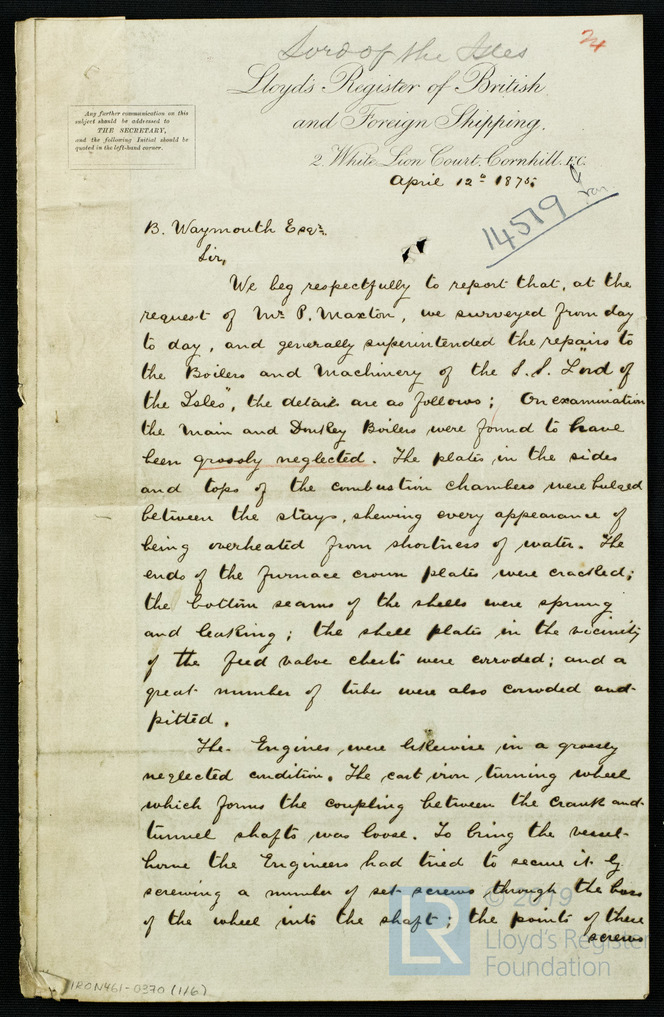 Lord of the Isles
24
Lloyd's Register of British
and Foreign Shipping.
2, White Lion Court, Cornhill. E.C.
Any further communication on this
subject should be addressed to
THE SECRETARY,
and the following Initial should be
quoted in the left-hand corner.
April 12th 1875.
14519
B. Waymouth Esqr.
Sir,
We beg respectfully to report that, at the
request of Mr. P. Maxton, we surveyed from day
to day, and generally superintended the repairs to
the Boilers and Machinery of the S.S. "Lord of
the Isles", the details are as follows; On examination
the Main and Donkey Boilers were found to have
been grossly neglected. The plates in the sides
and tops of the combustion chambers were bulged
between the stays, shewing every appearance of
being overheated from shortness of water. The
ends of the furnace crown plates were cracked;
the bottom seams of the shells were sprung
and leaking; the shell plates in the vicinity
of the feed valve chests were corroded; and a
great number of tubes were also corroded and
pitted.
The Engines were likewise in a grossly
neglected condition. The cast iron turning wheel
which forms the coupling between the crank and
tunnel shafts was loose. To bring the vessel
home the Engineers had tried to secure it by
screwing a number of set screws through the boss
of the wheel into the shaft; the points of these
screws
LR
© 2019
Lloyd's Register
Foundation
IRON461-0370 (1/6)